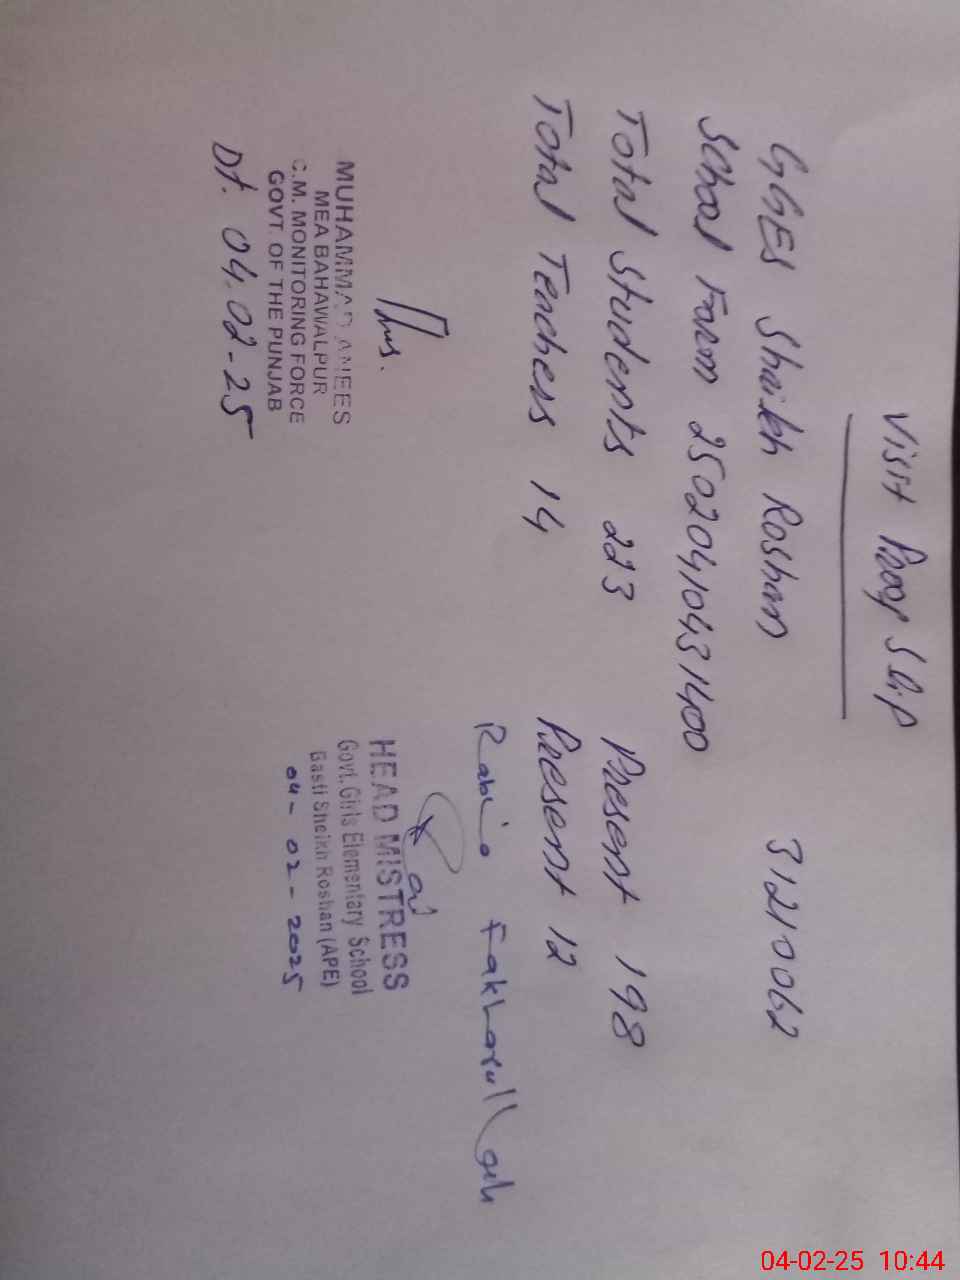 Visit Proof Slip
GGES Shaikh Roshan 31210062
School Farm 25020410431400
Total Students 223 Present 198
Total Teachers 14 Present 12
Rabia Fakharullah
MUHAMMAD ANEES
MEA BAHAWALPUR
C.M. MONITORING FORCE
GOVT. OF THE PUNJAB
Dt. 04.02-25
HEAD MISTRESS
Govt. Girls Elementary School
Basti Sheikh Roshan (APE)
04-02-2025
04-02-25 10:44